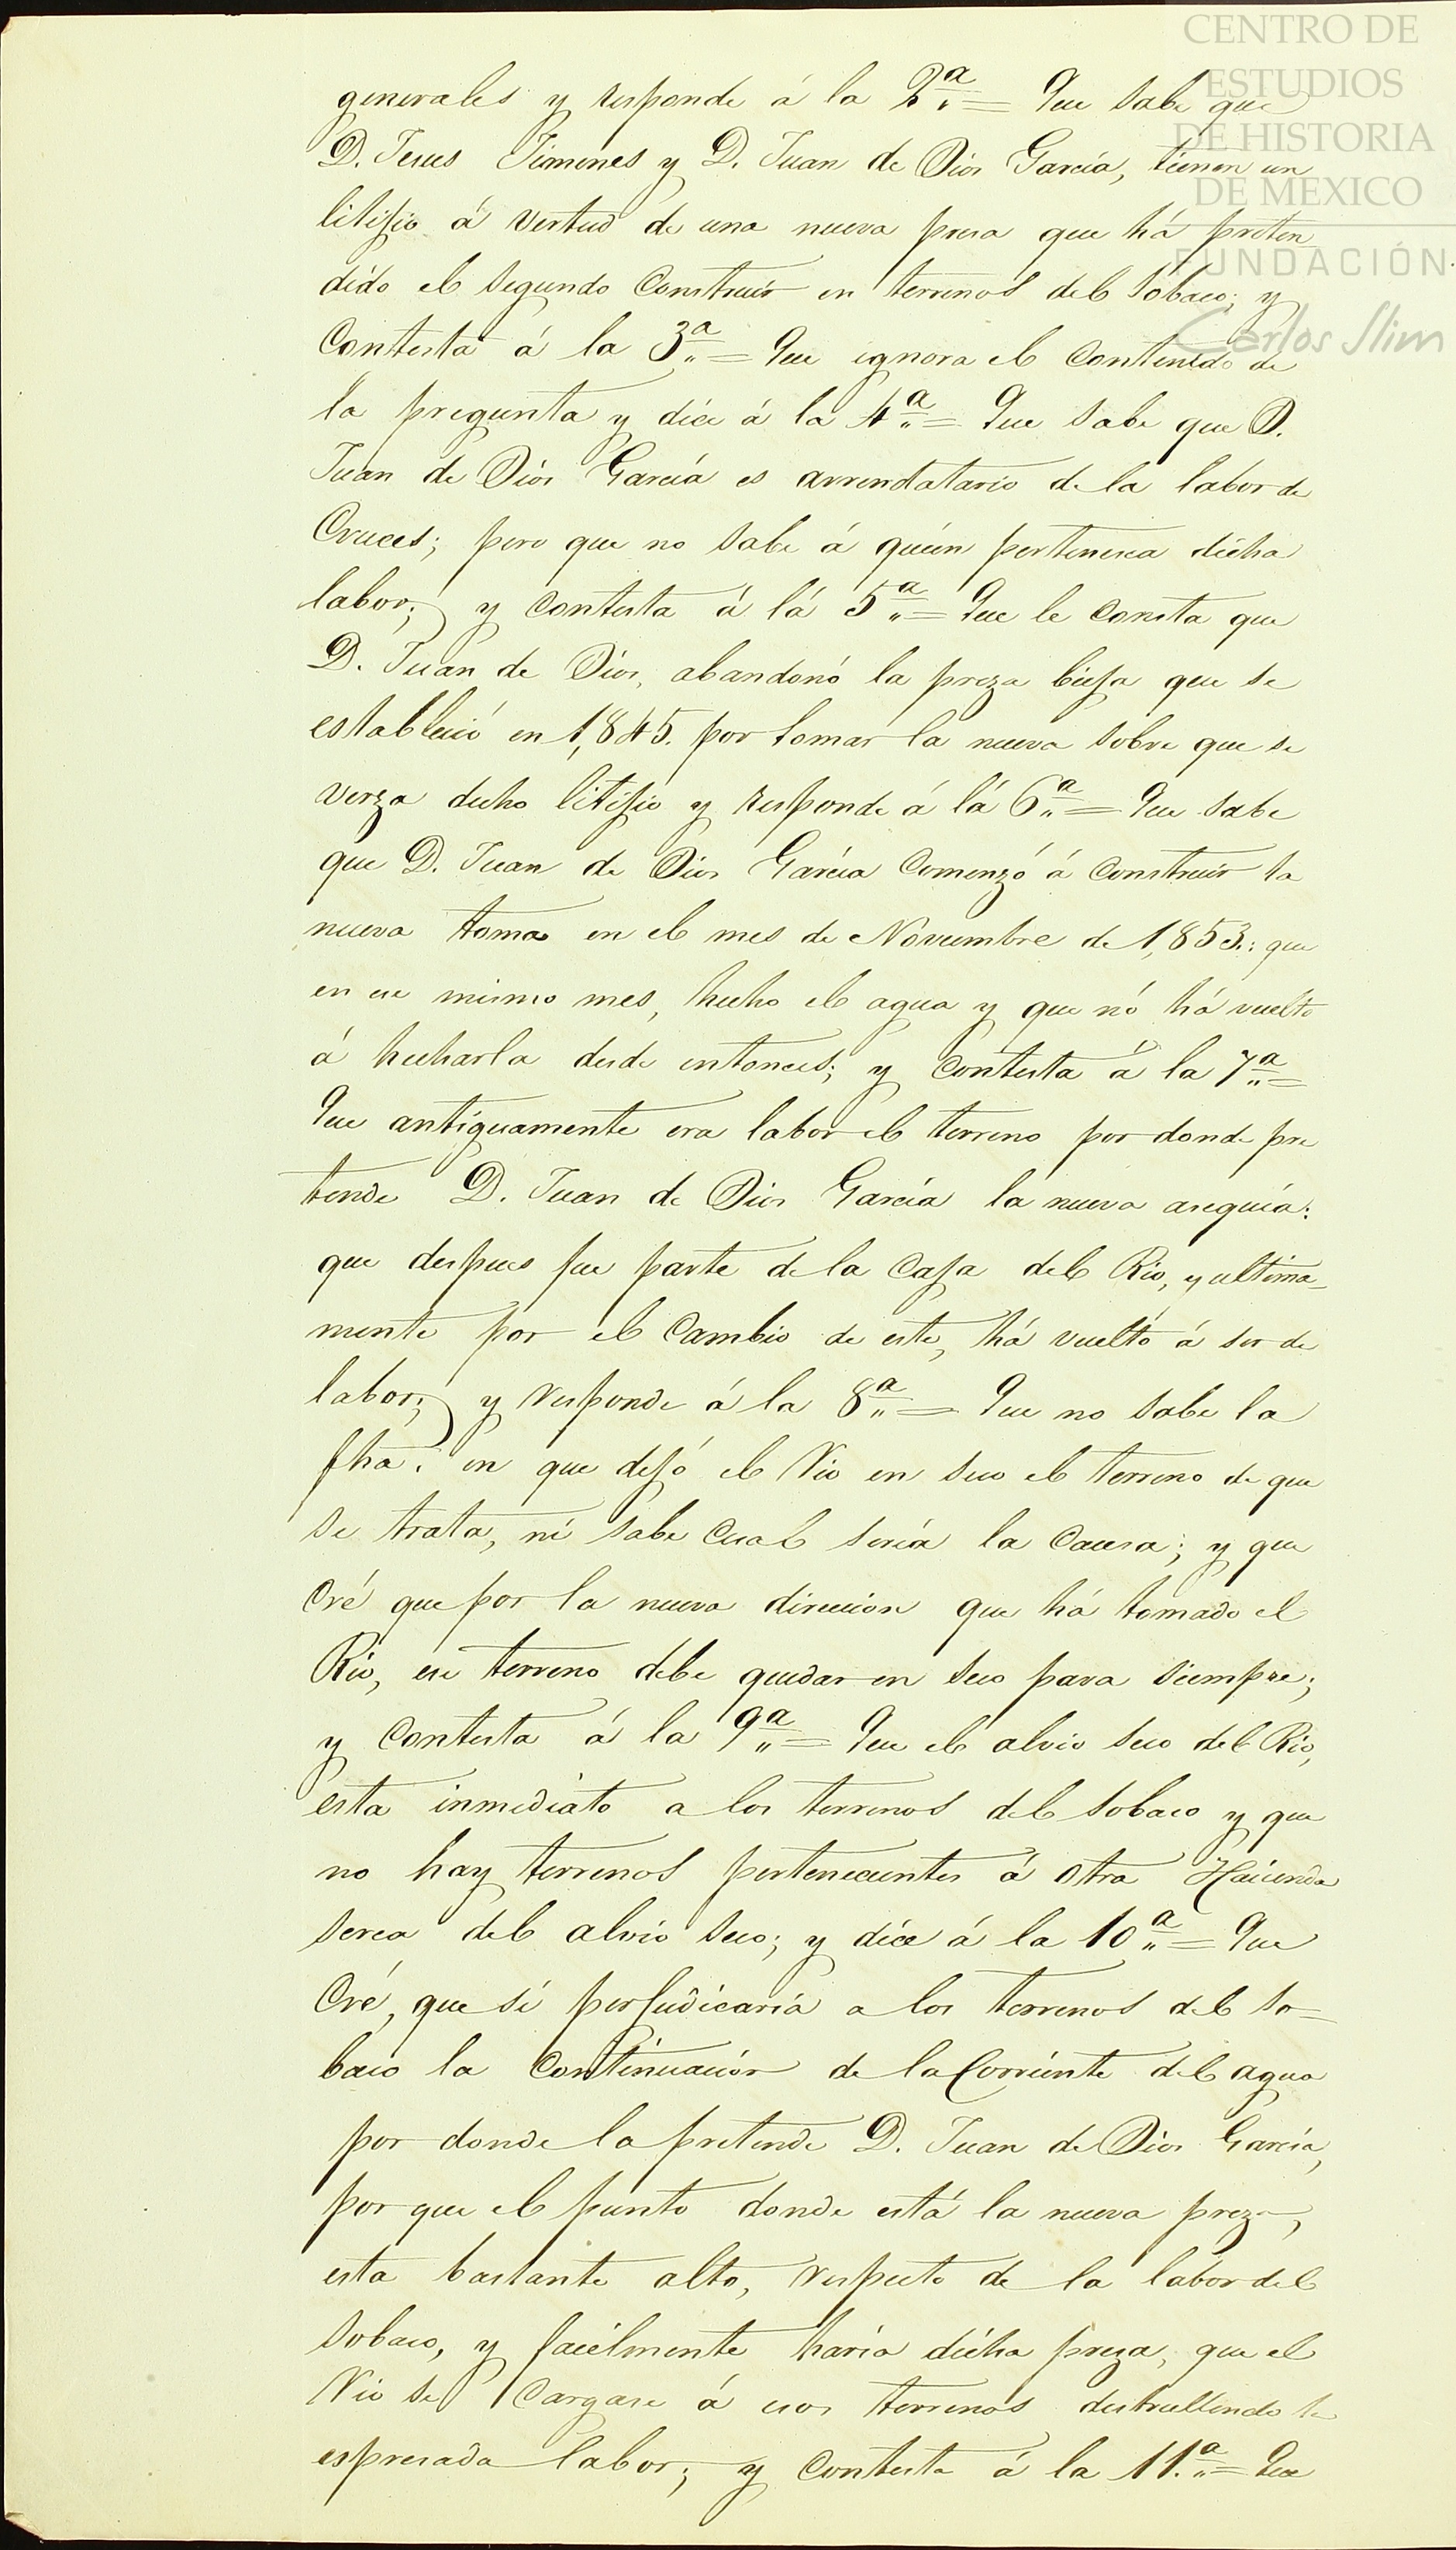 CENTRO DE
ESTUDIOS
DE HISTORIA
DE MEXICO
FUNDACIÓN
Carlos Slim
generales y responde á la 2ª = Que sabe que
D. Jesus Jimenes y D. Juan de Dios García, tienen un
litijio á vertud de una nueva presa que há preten
dido el segundo construir en terrenos del Sobaco; y
Contesta á la 3ª = Que ignora el contenido de
la pregunta y dice á la 4ª = Que sabe que D.
Juan de Dios García es arrendatario de la labor de
Cruces; pero que no sabe á quien pertenesca dicha
labor; y contesta á lá 5ª = Que le consta que
D. Juan de Dios, abandonó la preza bieja que se
estableció en 1,845. por tomar la nueva sobre que se
verza dicho litijio y responde á lá 6ª = Que sabe
que D. Juan de Dios García comenzó á construir la
nueva toma en el mes de Noviembre de 1,853.: que
en ese mismo mes, hecho el agua y que nó há vuelto
á hecharla desde entonces; y contesta á la 7ª =
Que antiguamente era labor el terreno por donde pre
tende D. Juan de Dios García la nueva asequia:
que despues fue parte de la caja del Rio, y ultima-
mente por el cambio de este, há vuelto á ser de
labor; y responde á la 8ª = Que no sabe la
fha. en que dejó el Rio en seco el terreno de que
se trata, ni sabe cual sería la causa; y que
cré que por la nueva direccion que há tomado el
Rio, ese terreno debe quedar en seco para siempre;
y contesta á la 9ª = Que el alvio seco del Rio,
esta inmediato a los terrenos del Sobaco y que
no hay terrenos pertenecientes á otra Hacienda
serca del alvio seco; y dice á la 10ª = Que
Cré, que si perjudicaría a los terrenos del So-
baco la continuación de la Corriente del agua
por donde la pretende D. Juan de Dios García,
por que el punto donde está la nueva preza,
esta bastante alto, respecto de la labor del
Sobaco, y facilmente haría dicha preza, que el
Rio se cargase á esos terrenos destrullendo la
espresada labor; y contesta á la 11ª = Que